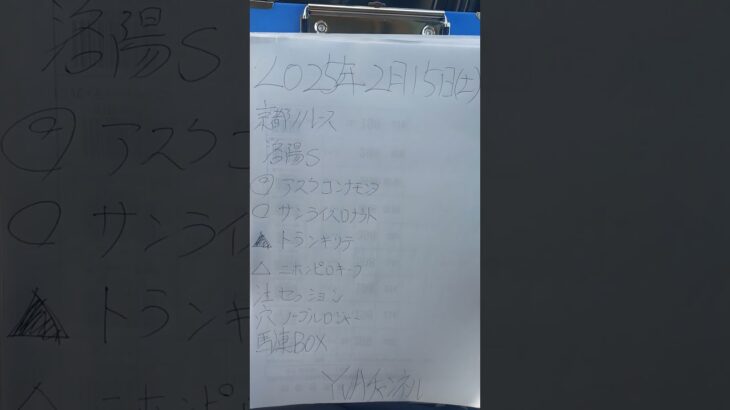 2025年2月15日(土)
京都11レース
洛陽S
◎アスクコンナモンダ
○サンライズロナウド
▲トランキリテ
△ニホンピロキーフ
注セッション
穴ノーブルロジャー
馬連BOX
YJAチャンネル